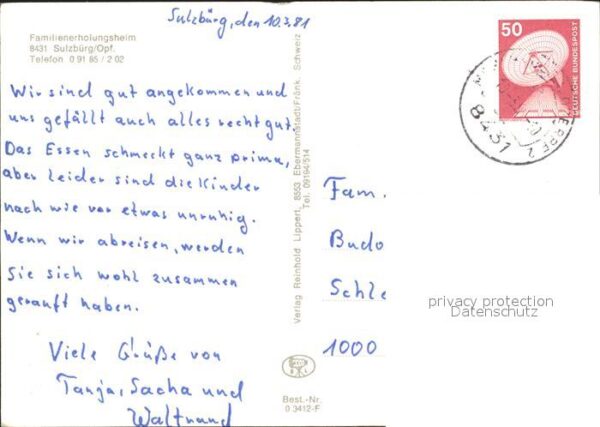 Sulzbürg, den 10.3.81
Familienerholungsheim
8431 Sulzbürg/Opf.
Telefon 0 91 85 / 2 02
Wir sind gut angekommen und
uns gefällt auch alles recht gut.
Das Essen schmeckt ganz prima,
aber leider sind die Kinder
nach wie vor etwas unruhig.
Wenn wir abreisen, werden
Sie sich wohl zusammen
gerauft haben.
Viele Grüße von
Tanja, Sacha und
Waltraud
Verlag Reinhold Lippert, 8553 Ebermannstadt/Fränk. Schweiz
Tel. 09194/514
Best.-Nr.
0 3412-F
50
DEUTSCHE BUNDESPOST
8431
Fam.
Budo
Schle
1000
privacy protection
Datenschutz